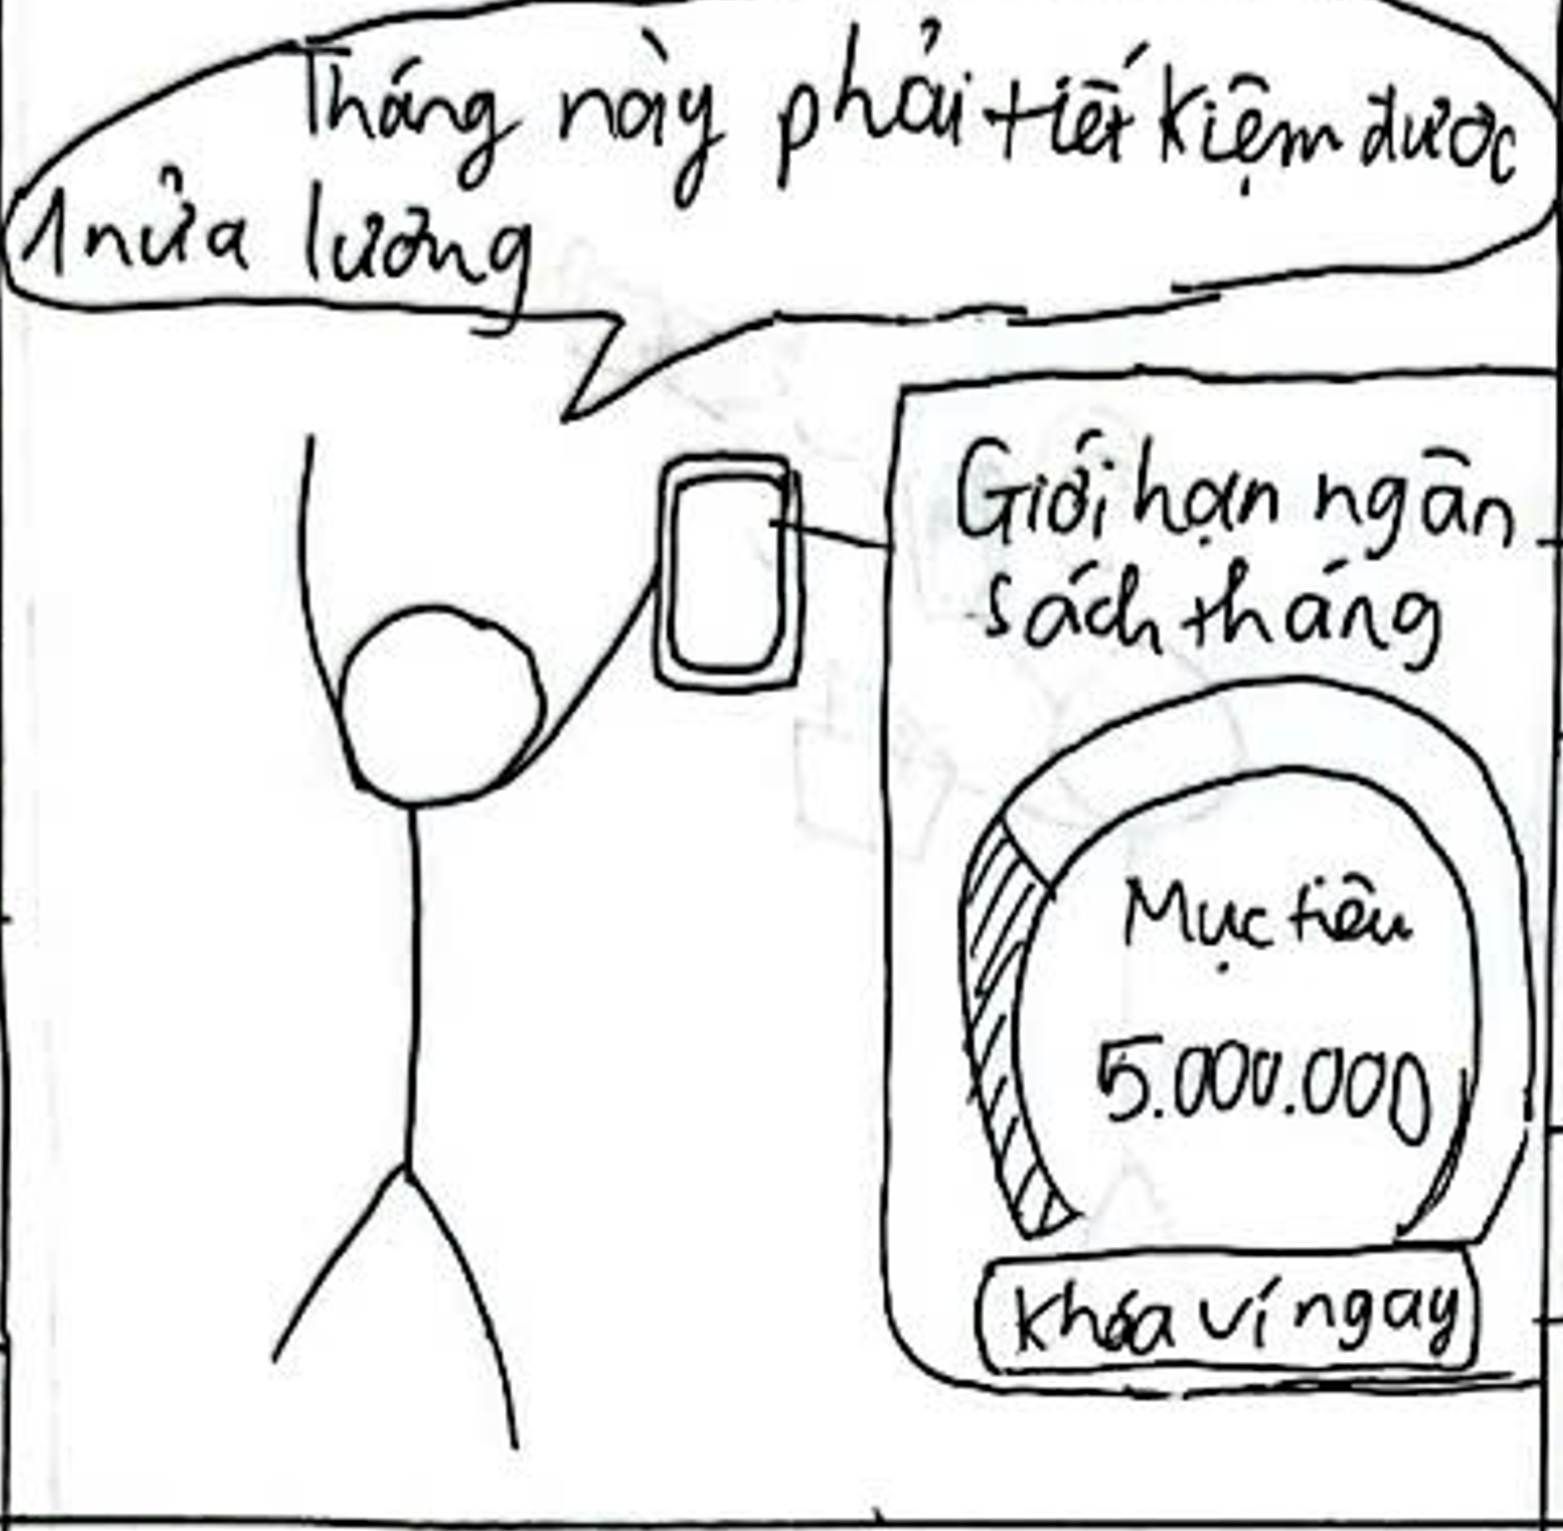 Tháng này phải tiết kiệm được
1 nửa lương
Giới hạn ngân
sách tháng
Mục tiêu
5.000.000
Khóa ví ngay